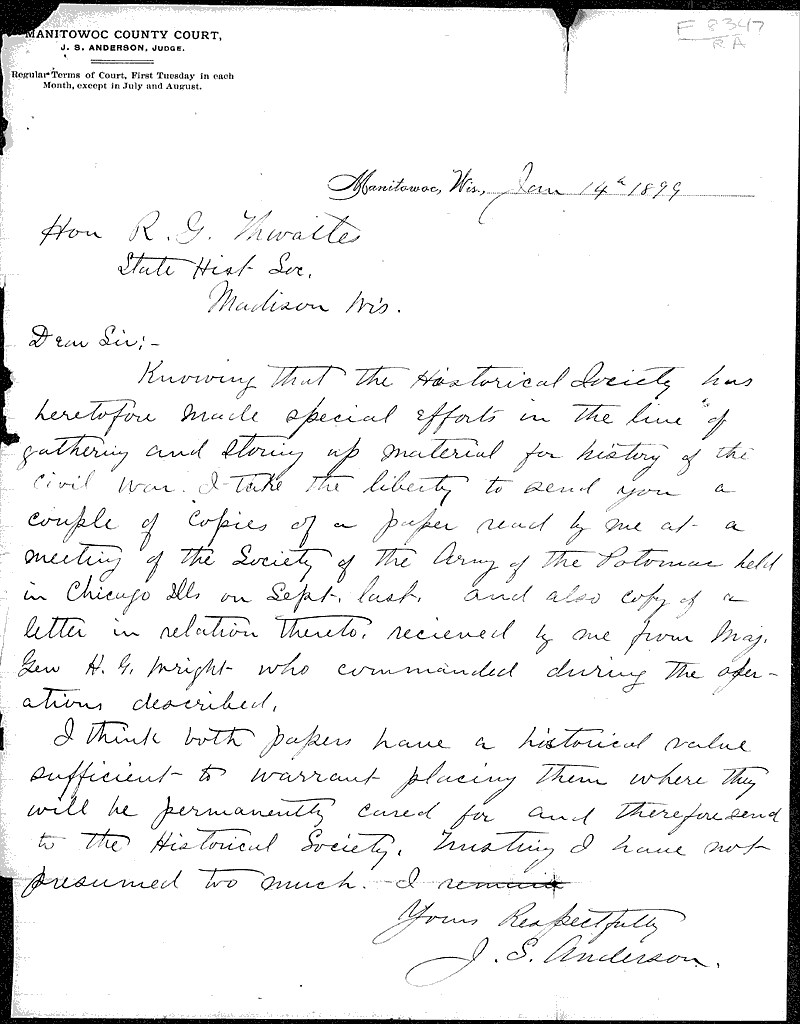 F 8347
RA
MANITOWOC COUNTY COURT,
J. S. ANDERSON, JUDGE.
Regular Terms of Court, First Tuesday in each
Month, except in July and August.
Manitowoc, Wis., Jan 14th 1899
Hon R. G. Thwaites
State Hist Soc.
Madison Wis.
Dear Sir;-
Knowing that the Historical Society has
heretofore made special efforts in the line of
gathering and storing up material for history of the
civil war. I take the liberty to send you a
couple of copies of a paper read by me at a
meeting of the Society of the Army of the Potomac held
in Chicago Ills on Sept. last. and also copy of a
letter in relation thereto. recieved by me from Maj.
Gen H. G. Wright who commanded during the oper-
ations described.
I think both papers have a historical value
sufficient to warrant placing them where they
will be permanently cared for and therefore send
to the Historical Society. Trusting I have not
presumed too much. I remain
Yours Respectfully
J. S. Anderson.